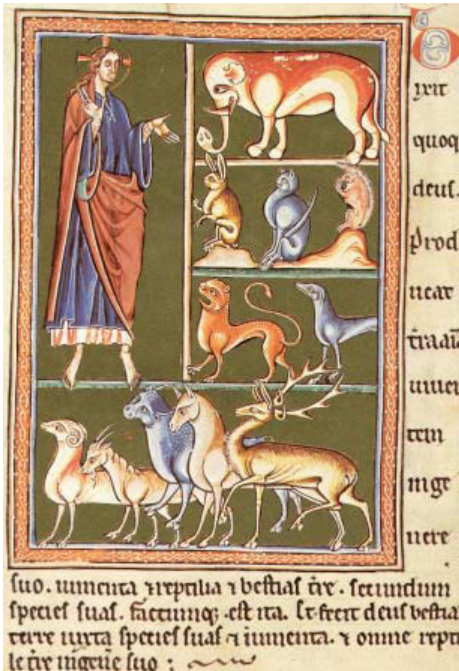 ixit
quoq
deus.
Prod
ucat
t̄ra aīa
uiuen
tem
in ge
nere
suo. iumenta ⁊ reptilia ⁊ bestias t̄re. secundum
species suas. factumq; est ita. Et fecit deus bestia
terre iuxta species suas ⁊ iumenta. ⁊ omne repti
le t̄re in genere suo :